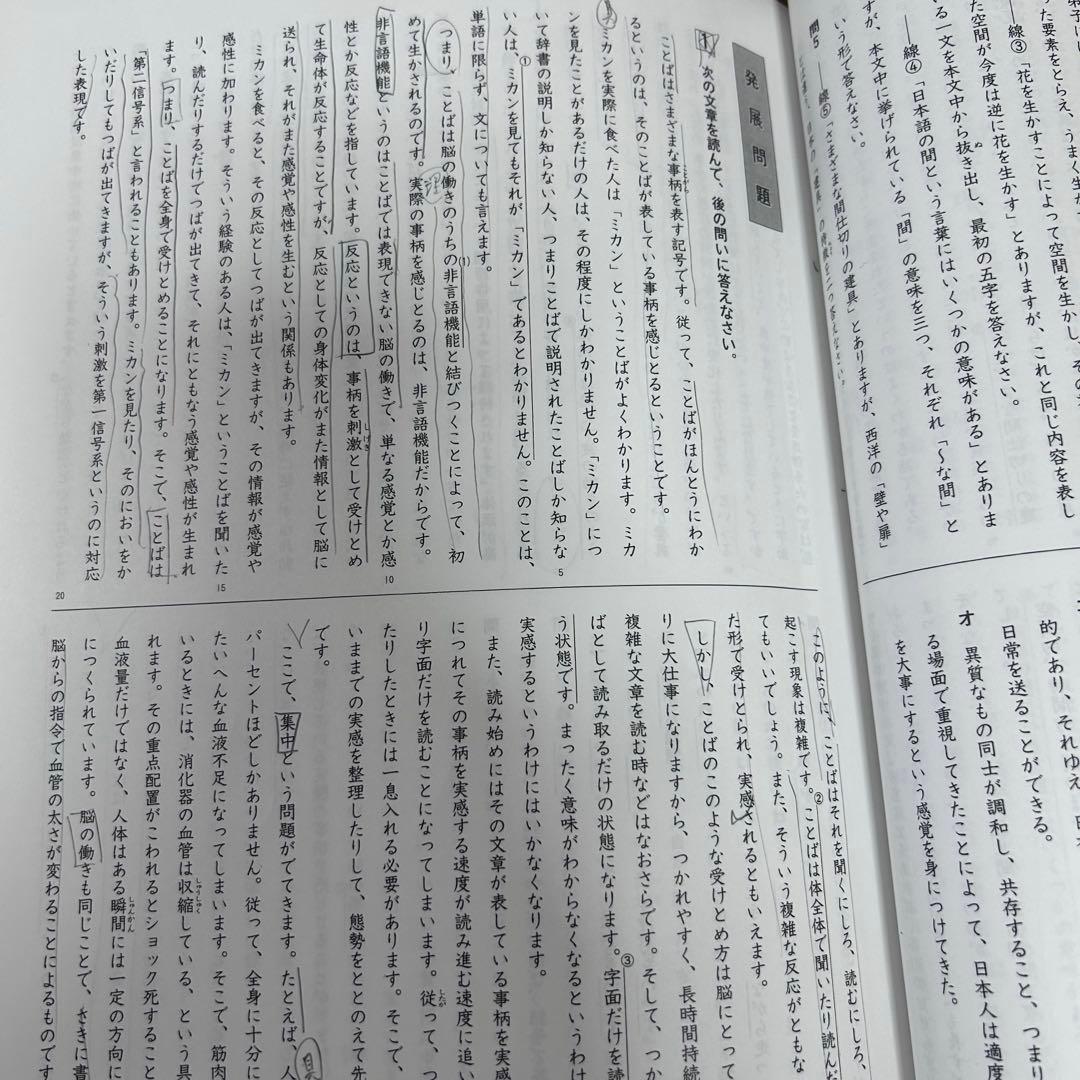 弟子に
った要素をとらえ、うまく花
線③「花を生かすことによって空間を生かし、その
た空間が今度は逆に花を生かす」とありますが、これと同じ内容を表し
いる一文を本文中から抜き出し、最初の五字を答えなさい。
――線④「日本語の間という言葉にはいくつかの意味がある」とありま
すが、本文中に挙げられている「間」の意味を三つ、それぞれ「〜な間」と
いう形で答えなさい。
問5
線⑤「さまざまな間仕切りの建具」とありますが、西洋の「壁や扉」
発展問題
1 次の文章を読んで、後の問いに答えなさい。
ことばはさまざまな事柄を表す記号です。従って、ことばがほんとうにわか
るというのは、そのことばが表している事柄を感じとるということです。
ミカンを実際に食べた人は「ミカン」ということばがよくわかります。ミカ
ンを見たことがあるだけの人は、その程度にしかわかりません。「ミカン」につ
いて辞書の説明しか知らない人、つまりことばで説明されたことばしか知らな
い人は、①ミカンを見てもそれが「ミカン」であるとわかりません。このことは、
単語に限らず、文についても言えます。
つまり、ことばは脳の働きのうちの非言語機能(1)と結びつくことによって、初
めて生かされるのです。実際の事柄を感じとるのは、非言語機能だからです。
理
非言語機能というのはことばでは表現できない脳の働きで、単なる感覚とか感
性とか反応などを指しています。反応というのは、事柄を刺激として受けとめ
て生命体が反応することですが、反応としての身体変化がまた情報として脳に
送られ、それがまた感覚や感性を生むという関係もあります。
ミカンを食べると、その反応としてつばが出てきますが、その情報が感覚や
感性に加わります。そういう経験のある人は、「ミカン」ということばを聞いた
り、読んだりするだけでつばが出てきて、それにともなう感覚や感性が生まれ
ます。つまり、ことばを全身で受けとめることになります。そこで、ことばは
「第二信号系」と言われることもあります。ミカンを見たり、そのにおいをか
いだりしてもつばが出てきますが、そういう刺激を第一信号系というのに対応
した表現です。
5
10
15
20
的であり、それゆえ
日常を送ることができる。
オ 異質なもの同士が調和し、共存すること、つまり
る場面で重視してきたことによって、日本人は適度
を大事にするという感覚を身につけてきた。
このように、ことばはそれを聞くにしろ、読むにしろ、
起こす現象は複雑です。②ことばは体全体で聞いたり読んだ
てもいいでしょう。また、そういう複雑な反応がともな
た形で受けとられ、実感されるともいえます。
しかし、ことばのこのような受けとめ方は脳にとって
りに大仕事になりますから、つかれやすく、長時間持続
複雑な文章を読む時などはなおさらです。そして、つか
ばとして読み取るだけの状態になります。③字面だけを読
う状態です。まったく意味がわからなくなるというわけ
実感するというわけにはいかなくなります。
また、読み始めにはその文章が表している事柄を実感
につれてその事柄を実感する速度が読み進む速度に追い
り字面だけを読むことになってしまいます。従って、つ
たりしたときには一息入れる必要があります。そこで、
いままでの実感を整理したりして、態勢をととのえて先
です。
ここで、集中という問題がでてきます。たとえば、人
パーセントほどしかありません。従って、全身に十分に
たいへんな血液不足になってしまいます。そこで、筋肉
いるときには、消化器の血管は収縮している、という具
れます。その重点配置がこわれるとショック死すること
血液量だけではなく、人体はある瞬間には一定の方向に
につくられています。脳の働きも同じことで、さきに書
脳からの指令で血管の太さが変わることによるものです